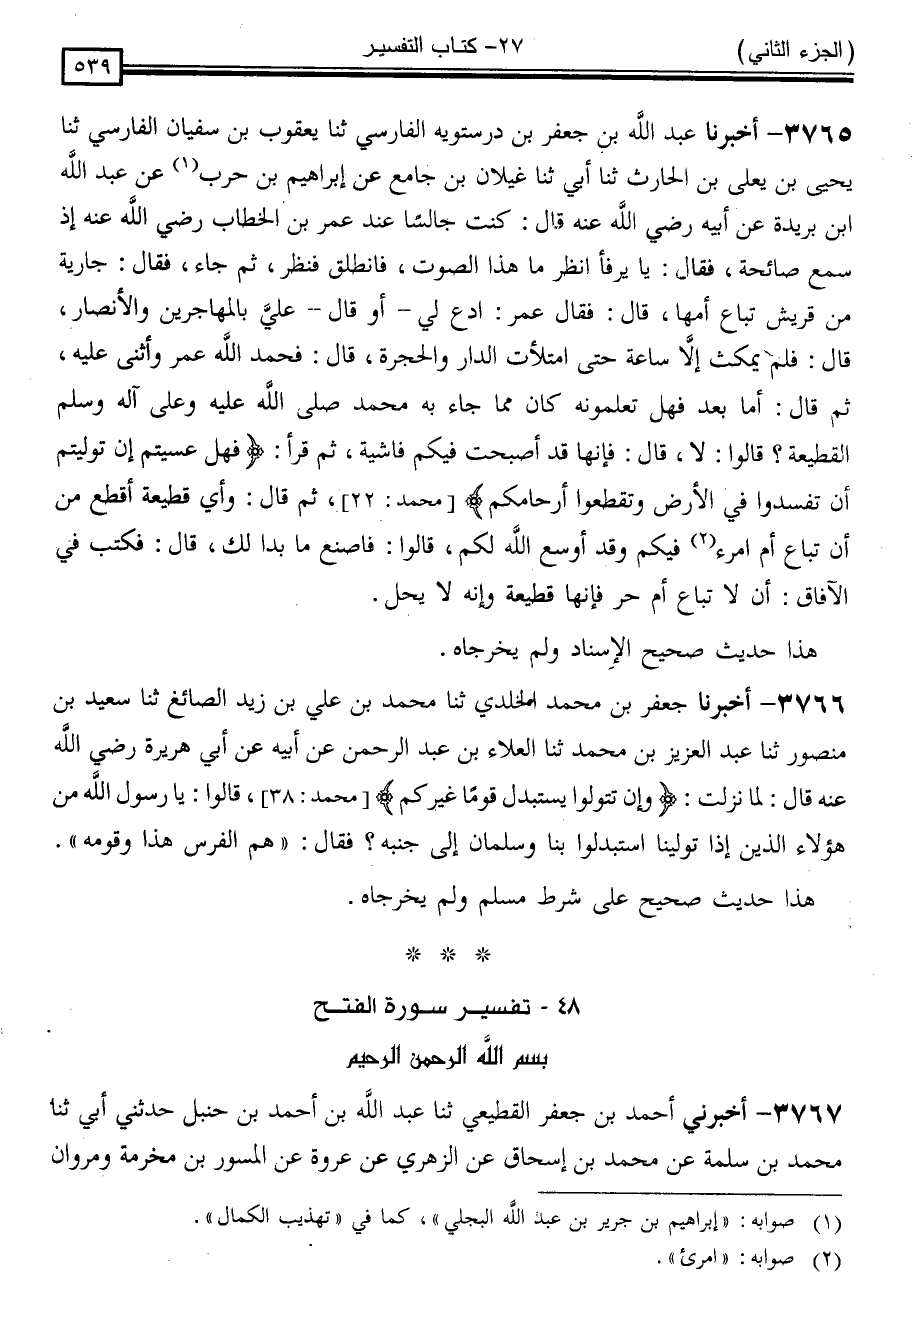 (الجزء الثاني)
٢٧- كتاب التفسير
٥٣٩
٣٧٦٥- أخبرنا عبد الله بن جعفر بن درستويه الفارسي ثنا يعقوب بن سفيان الفارسي ثنا
يحيى بن يعلى بن الحارث ثنا أبي ثنا غيلان بن جامع عن إبراهيم بن حرب(١) عن عبد الله
ابن بريدة عن أبيه رضي الله عنه قال : كنت جالسًا عند عمر بن الخطاب رضي الله عنه إذ
سمع صائحة ، فقال : يا يرفأ انظر ما هذا الصوت ، فانطلق فنظر ، ثم جاء ، فقال : جارية
من قريش تباع أمها ، قال : فقال عمر : ادع لي – أو قال – عليَّ بالمهاجرين والأنصار ،
قال : فلم يمكث إلَّا ساعة حتى امتلأت الدار والحجرة ، قال : فحمد الله عمر وأثنى عليه ،
ثم قال : أما بعد فهل تعلمونه كان مما جاء به محمد صلى الله عليه وعلى آله وسلم
القطيعة ؟ قالوا : لا ، قال : فإنها قد أصبحت فيكم فاشية ، ثم قرأ : ﴿ فهل عسيتم إن توليتم
أن تفسدوا في الأرض وتقطعوا أرحامكم ﴾ [محمد : ٢٢] ، ثم قال : وأي قطيعة أقطع من
أن تباع أم امرء(٢) فيكم وقد أوسع الله لكم ، قالوا : فاصنع ما بدا لك ، قال : فكتب في
الآفاق : أن لا تباع أم حر فإنها قطيعة وإنه لا يحل .
هذا حديث صحيح الإسناد ولم يخرجاه .
٣٧٦٦- أخبرنا جعفر بن محمد الخلدي ثنا محمد بن علي بن زيد الصائغ ثنا سعيد بن
منصور ثنا عبد العزيز بن محمد ثنا العلاء بن عبد الرحمن عن أبيه عن أبي هريرة رضي الله
عنه قال : لما نزلت : ﴿ وإن تتولوا يستبدل قومًا غيركم ﴾ [محمد : ٣٨] ، قالوا : يا رسول الله من
هؤلاء الذين إذا تولينا استبدلوا بنا وسلمان إلى جنبه ؟ فقال : « هم الفرس هذا وقومه » .
هذا حديث صحيح على شرط مسلم ولم يخرجاه .
* * *
٤٨ - تفسير سورة الفتح
بسم الله الرحمن الرحيم
٣٧٦٧- أخبرني أحمد بن جعفر القطيعي ثنا عبد الله بن أحمد بن حنبل حدثني أبي ثنا
محمد بن سلمة عن محمد بن إسحاق عن الزهري عن عروة عن المسور بن مخرمة ومروان
(١) صوابه : «إبراهيم بن جرير بن عبد الله البجلي» ، كما في «تهذيب الكمال» .
(٢) صوابه : «امرئ» .